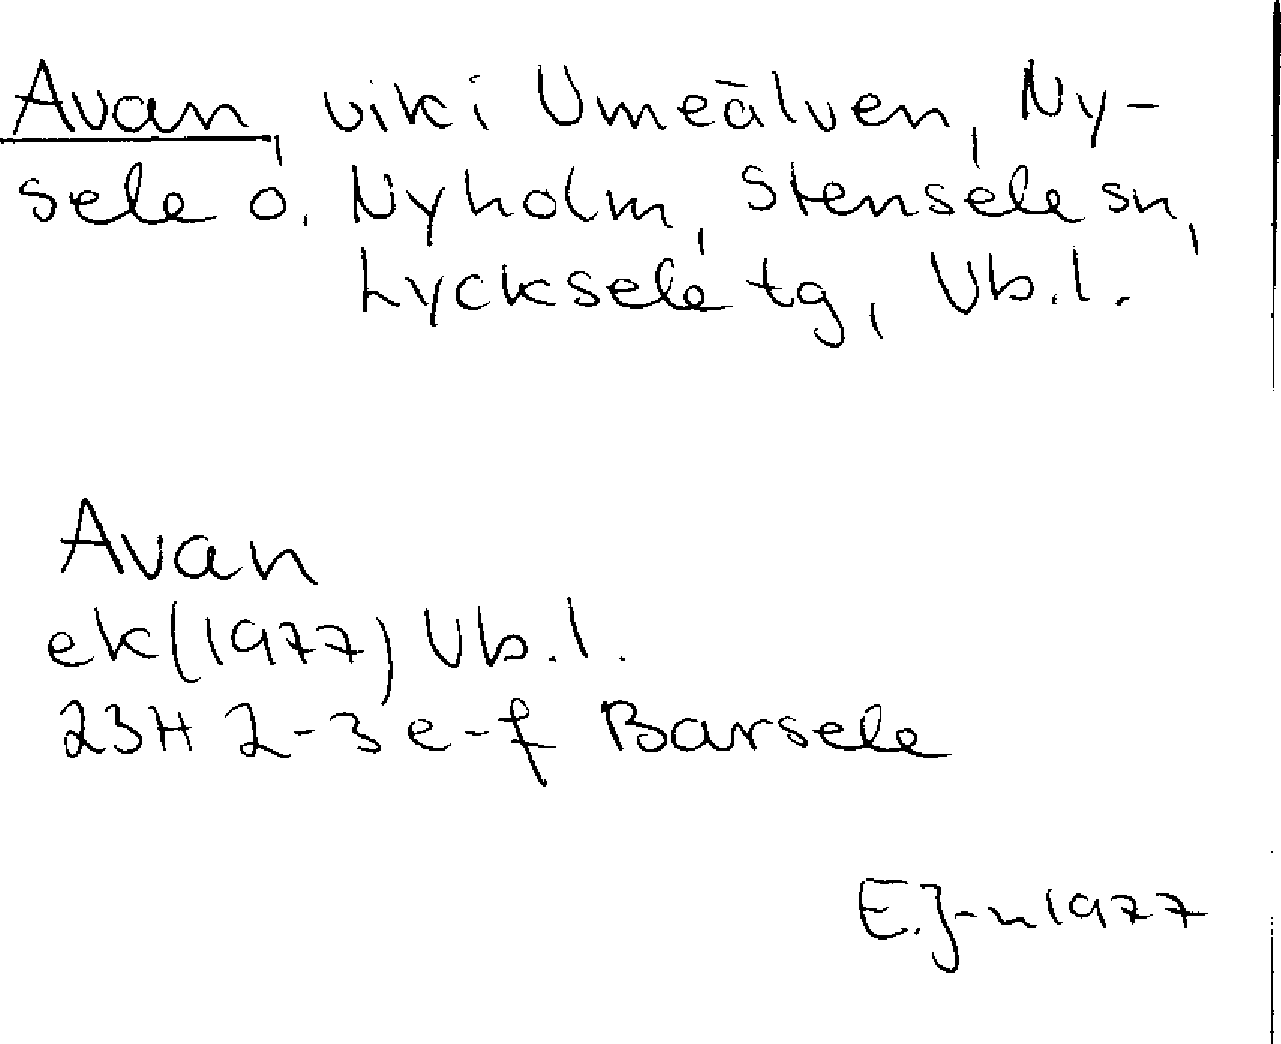 Avan, vik i Umeälven, Ny-
sele o. Nyholm, Stensele sn,
Lycksele tg, Vb.l.
Avan
ek (1977) Vb.l.
23H 2-3 e-f Barsele
E.J-n 1977